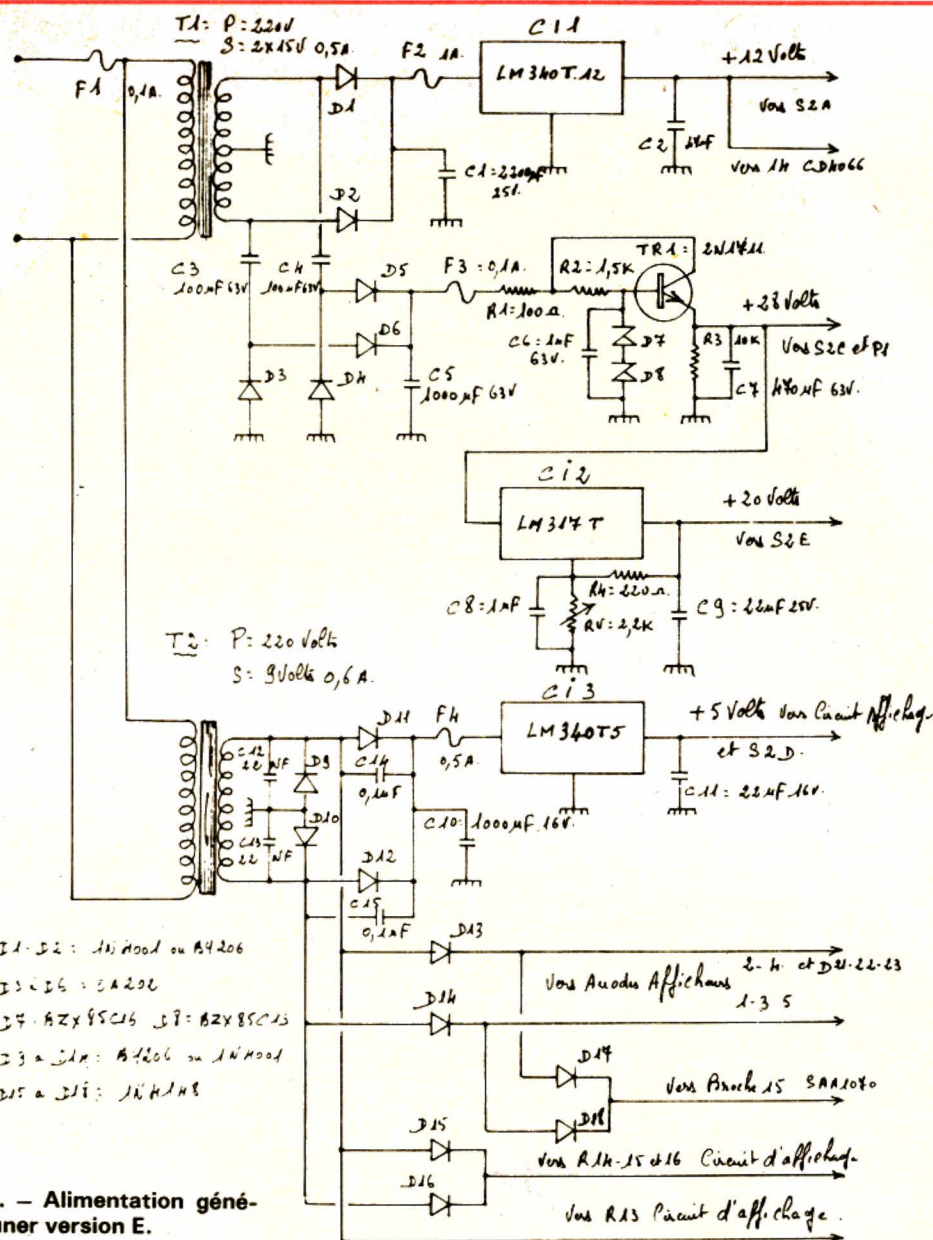 T1: P = 220V
S = 2x15V 0,5A.
F1
0,1A.
D1
F2 1A.
Ci1
LM340T.12
+12 Volts
vers S2A
C2
vers 14 CD4066
C1 = 2200µF
25V.
D2
C3
100µF 63V
C4
100µF 63V
D5
D6
D3
D4
C5
1000µF 63V
F3 = 0,1A.
R1 = 100Ω
R2 = 1,5K
TR1 = 2N1711
C6 = 1µF
63V.
D7
D8
R3
10K
C7
470µF 63V.
+28 Volts
vers S2C et P1
Ci2
LM317T
+20 Volts
vers S2E
R4 = 220Ω
C8 = 1µF
RV = 2,2K
C9 = 22µF 25V.
T2: P = 220 Volts
S = 9Volts 0,6A.
Ci3
LM340T5
+5 Volts vers Circuit Affichage
et S2D.
C11 = 22µF 16V.
D11
F4
0,5A.
C12
22 NF
D9
C14
0,1µF
D10
C13
22 NF
C10 =
1000µF 16V.
D12
C15
0,1µF
D13
D14
Vers Anodes Afficheurs
2-4 et D21-22-23
1-3 5
D17
D18
vers Broche 15 SAA1070
D15
D16
vers R14-15 et 16 Circuit d'affichage
vers R13 Circuit d'affichage.
D1-D2 : 1N4001 ou BY206
D7 : BZX85C15 D8 : BZX85C13
D9 a D14 : BY206 ou 1N4001
D15 a D18 : 1N4148
. – Alimentation géné-
uner version E.